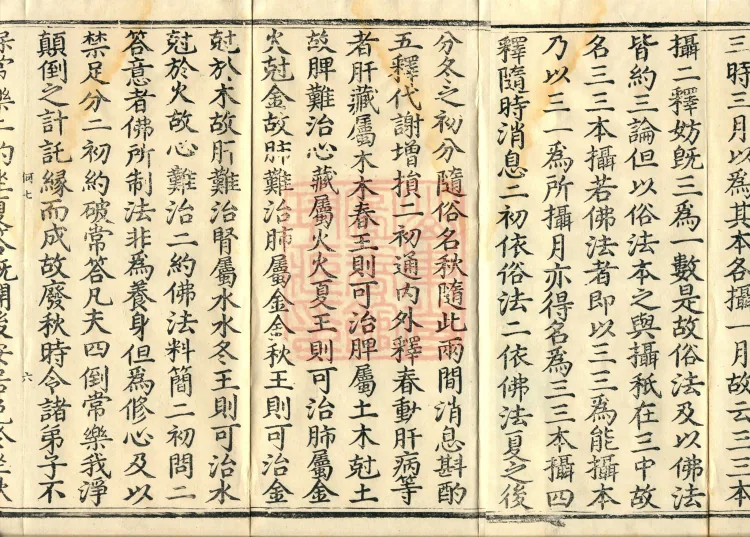 三時三月以爲其本各攝一月故云三三本
攝二釋妨既三爲一數是故俗法及以佛法
皆約三論但以俗法本之與攝秖在三中故
名三三本攝若佛法者即以三三爲能攝本
乃以三一爲所攝月亦得名爲三三本攝四
釋隨時消息二初依俗法二依佛法夏之後
分冬之初分隨俗名秋隨此兩間消息斟酌
五釋代謝增損二初通內外釋春動肝病等
者肝藏屬木木春王則可治脾屬土木尅土
故脾難治心藏屬火火夏王則可治肺屬金
火尅金故肺難治肺屬金金秋王則可治金
尅於木故肝難治腎屬水水冬王則可治水
尅於火故心難治二約佛法料簡二初問二
答意者佛所制法非爲養身但爲修心及以
禁足分二初約破常答凡夫四倒常樂我淨
何七
六
顛倒之計託緣而成故廢秋時令諸弟子不